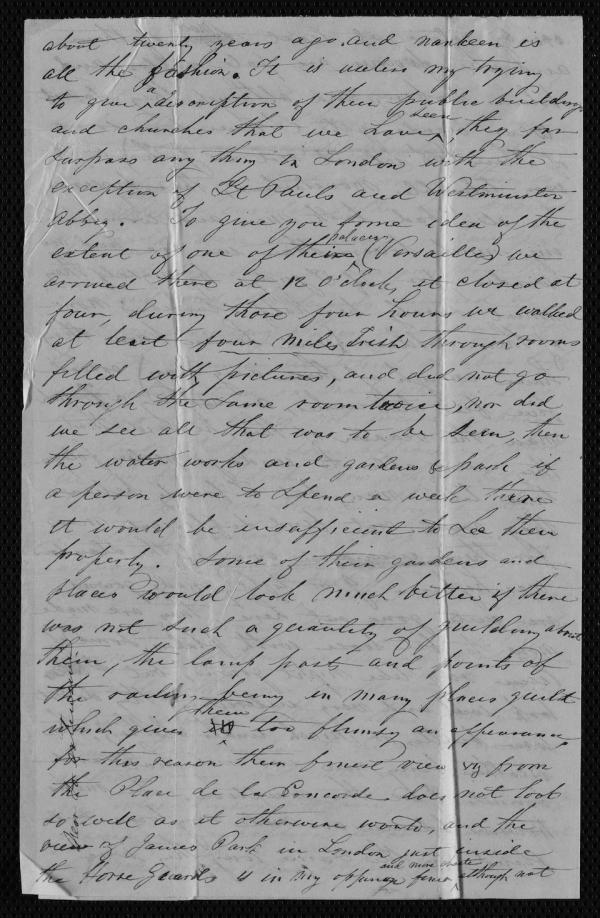 about twenty years ago. and nankeen is
all the fashion. It is useless my trying
to give a discription of their public buildings
and churches that we have seen, they far
surpass any thing in London with the
exception of St Pauls and Westminster
Abbey. To give you some idea of the
extent of one of their palaces (Versailles) we
arrived there at 12 O'clock, it closed at
four, during those four hours we walked
at least four miles Irish through rooms
filled with pictures, and did not go
through the same room twice, nor did
we see all that was to be seen, then
the water works and gardens & park if
a person were to spend a week there
it would be insufficient to see them
properly. Some of their gardens and
places would look much better if there
was not such a quantity of guilding about
them, the lamp post and points of
the railing being in many places guild
which gives them too flimsy an appearance,
for this reason their finest view vz from
the Place de la Concorde does not look
so well as it otherwise would, and the
view of James Park in London just inside
the Horse Guards is in my oppinion finer and more chaste although not